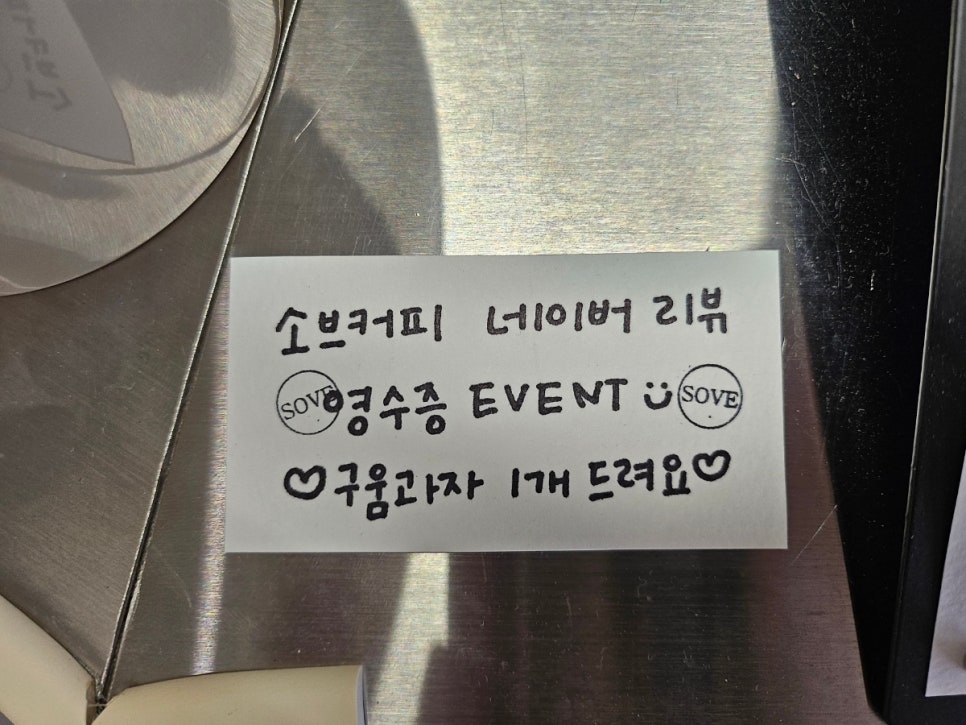 소브커피 네이버 리뷰
SOVE 영수증 EVENT SOVE
♡구움과자 1개 드려요♡